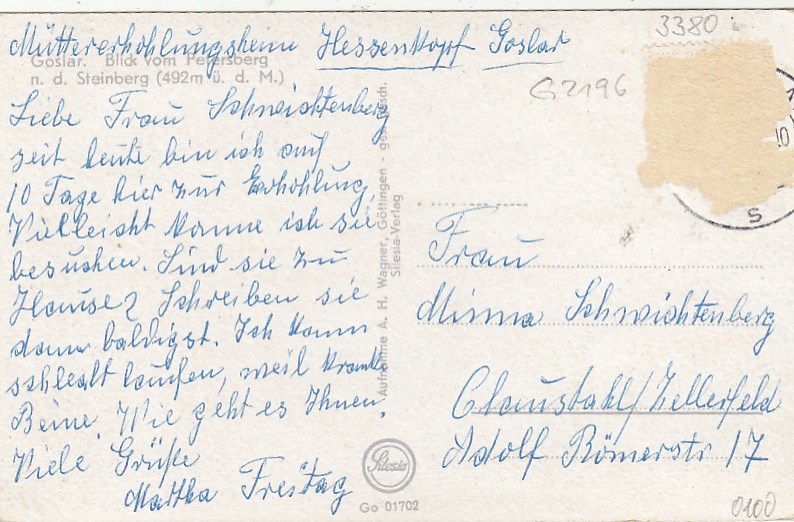 3380
Müttererhohlungsheim Hessenkopf Goslar
Goslar. Blick vom Petersberg
n. d. Steinberg (492m ü. d. M.)
G2196
Liebe Frau Schwichtenberg
seit heute bin ich auf
10 Tage hier zur Erhohlung,
Vielleicht kanne ich sie
besuchen. Sind sie zu
Hause? Schreiben sie
dann baldigst. Ich kann
schlecht laufen, weil kranke
Beine. Wie geht es Ihnen,
Viele Grüße
Martha Freitag
Aufnahme A. H. Wagner, Göttingen - ges. gesch.
Silesia-Verlag
Silesia
Go 01702
Frau
Minna Schwichtenberg
Claustahl/Zellerfeld
Adolf Römerstr 17
0100